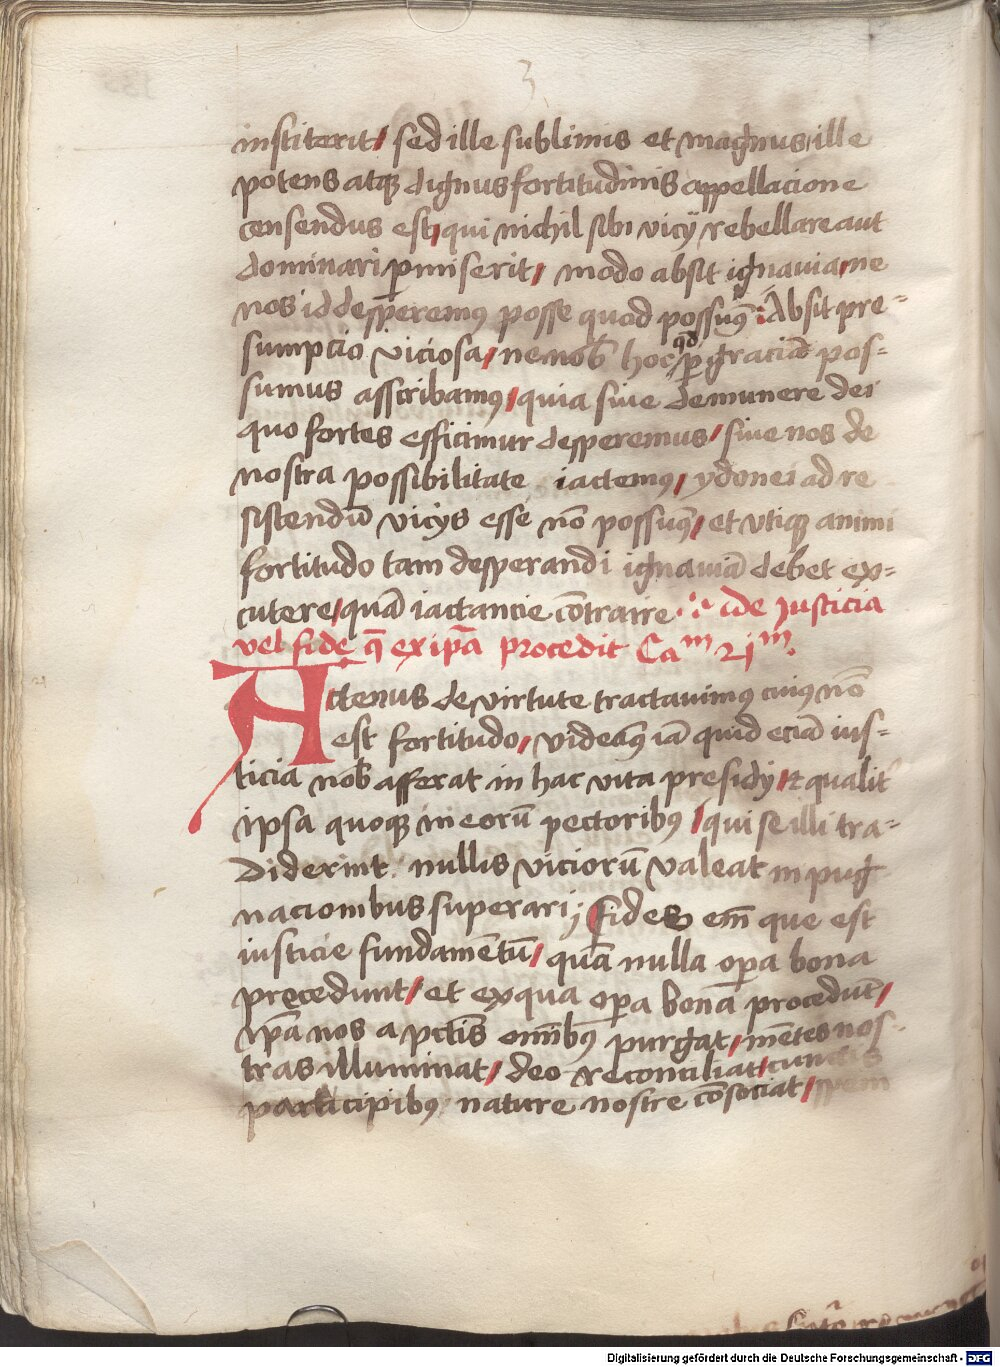 3
institerit / sed ille sublimis et magnus ille
potens atqꝫ dignus fortitudinis appellacione
censendus est / qui nichil sibi vicij rebellare aut
dominari ꝑmiserit / modo absit ignauia ne
nos id desperemꝰ posse quod possumꝰ : Absit pre-
sumpcio viciosa / ne nob̄ hoc qd̄ ꝑ graciā pos-
sumus asscribamꝰ / quia siue de munere dei
quo fortes efficimur desperemus / siue nos de
nostra possibilitate iactemꝰ / ydonei ad re
sistendū vicijs esse nō possumꝰ / et vtiqꝫ animi
fortitudo tam desperandi ignauiā debet ex-
cutere / quā iactancie cōtraire . De Justicia
vel fide q̄ ex ipā procedit Caᵐ 21ᵐ.
Actenus de virtute tractauimꝰ cuiꝰ nō
est fortitudo / videamꝰ iā quid eciā ius-
ticia nob̄ afferat in hac vita presidij / et qualit̄
ipsa quoqꝫ in eorū pectoribꝰ / qui se illi tra-
diderint nullis viciorū valeat inpug
nacionibus superari ; Fides em̄ que est
iusticie fundamētū / quā nulla oꝑa bona
precedunt / et ex qua oꝑa bona procedūt /
ipā nos a pctīs om̄ibꝰ purgat / mētes nos-
tras illuminat / deo reconciliat / cunctis
participibꝰ nature nostre cōsociat / spem
Digitalisierung gefördert durch die Deutsche Forschungsgemeinschaft - DFG